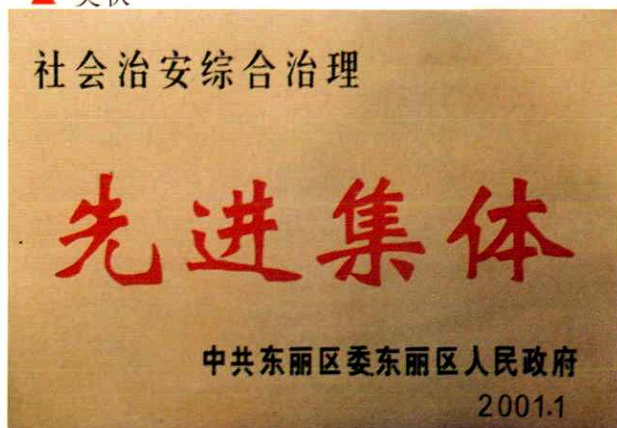 社会治安综合治理
先进集体
中共东丽区委东丽区人民政府
2001.1